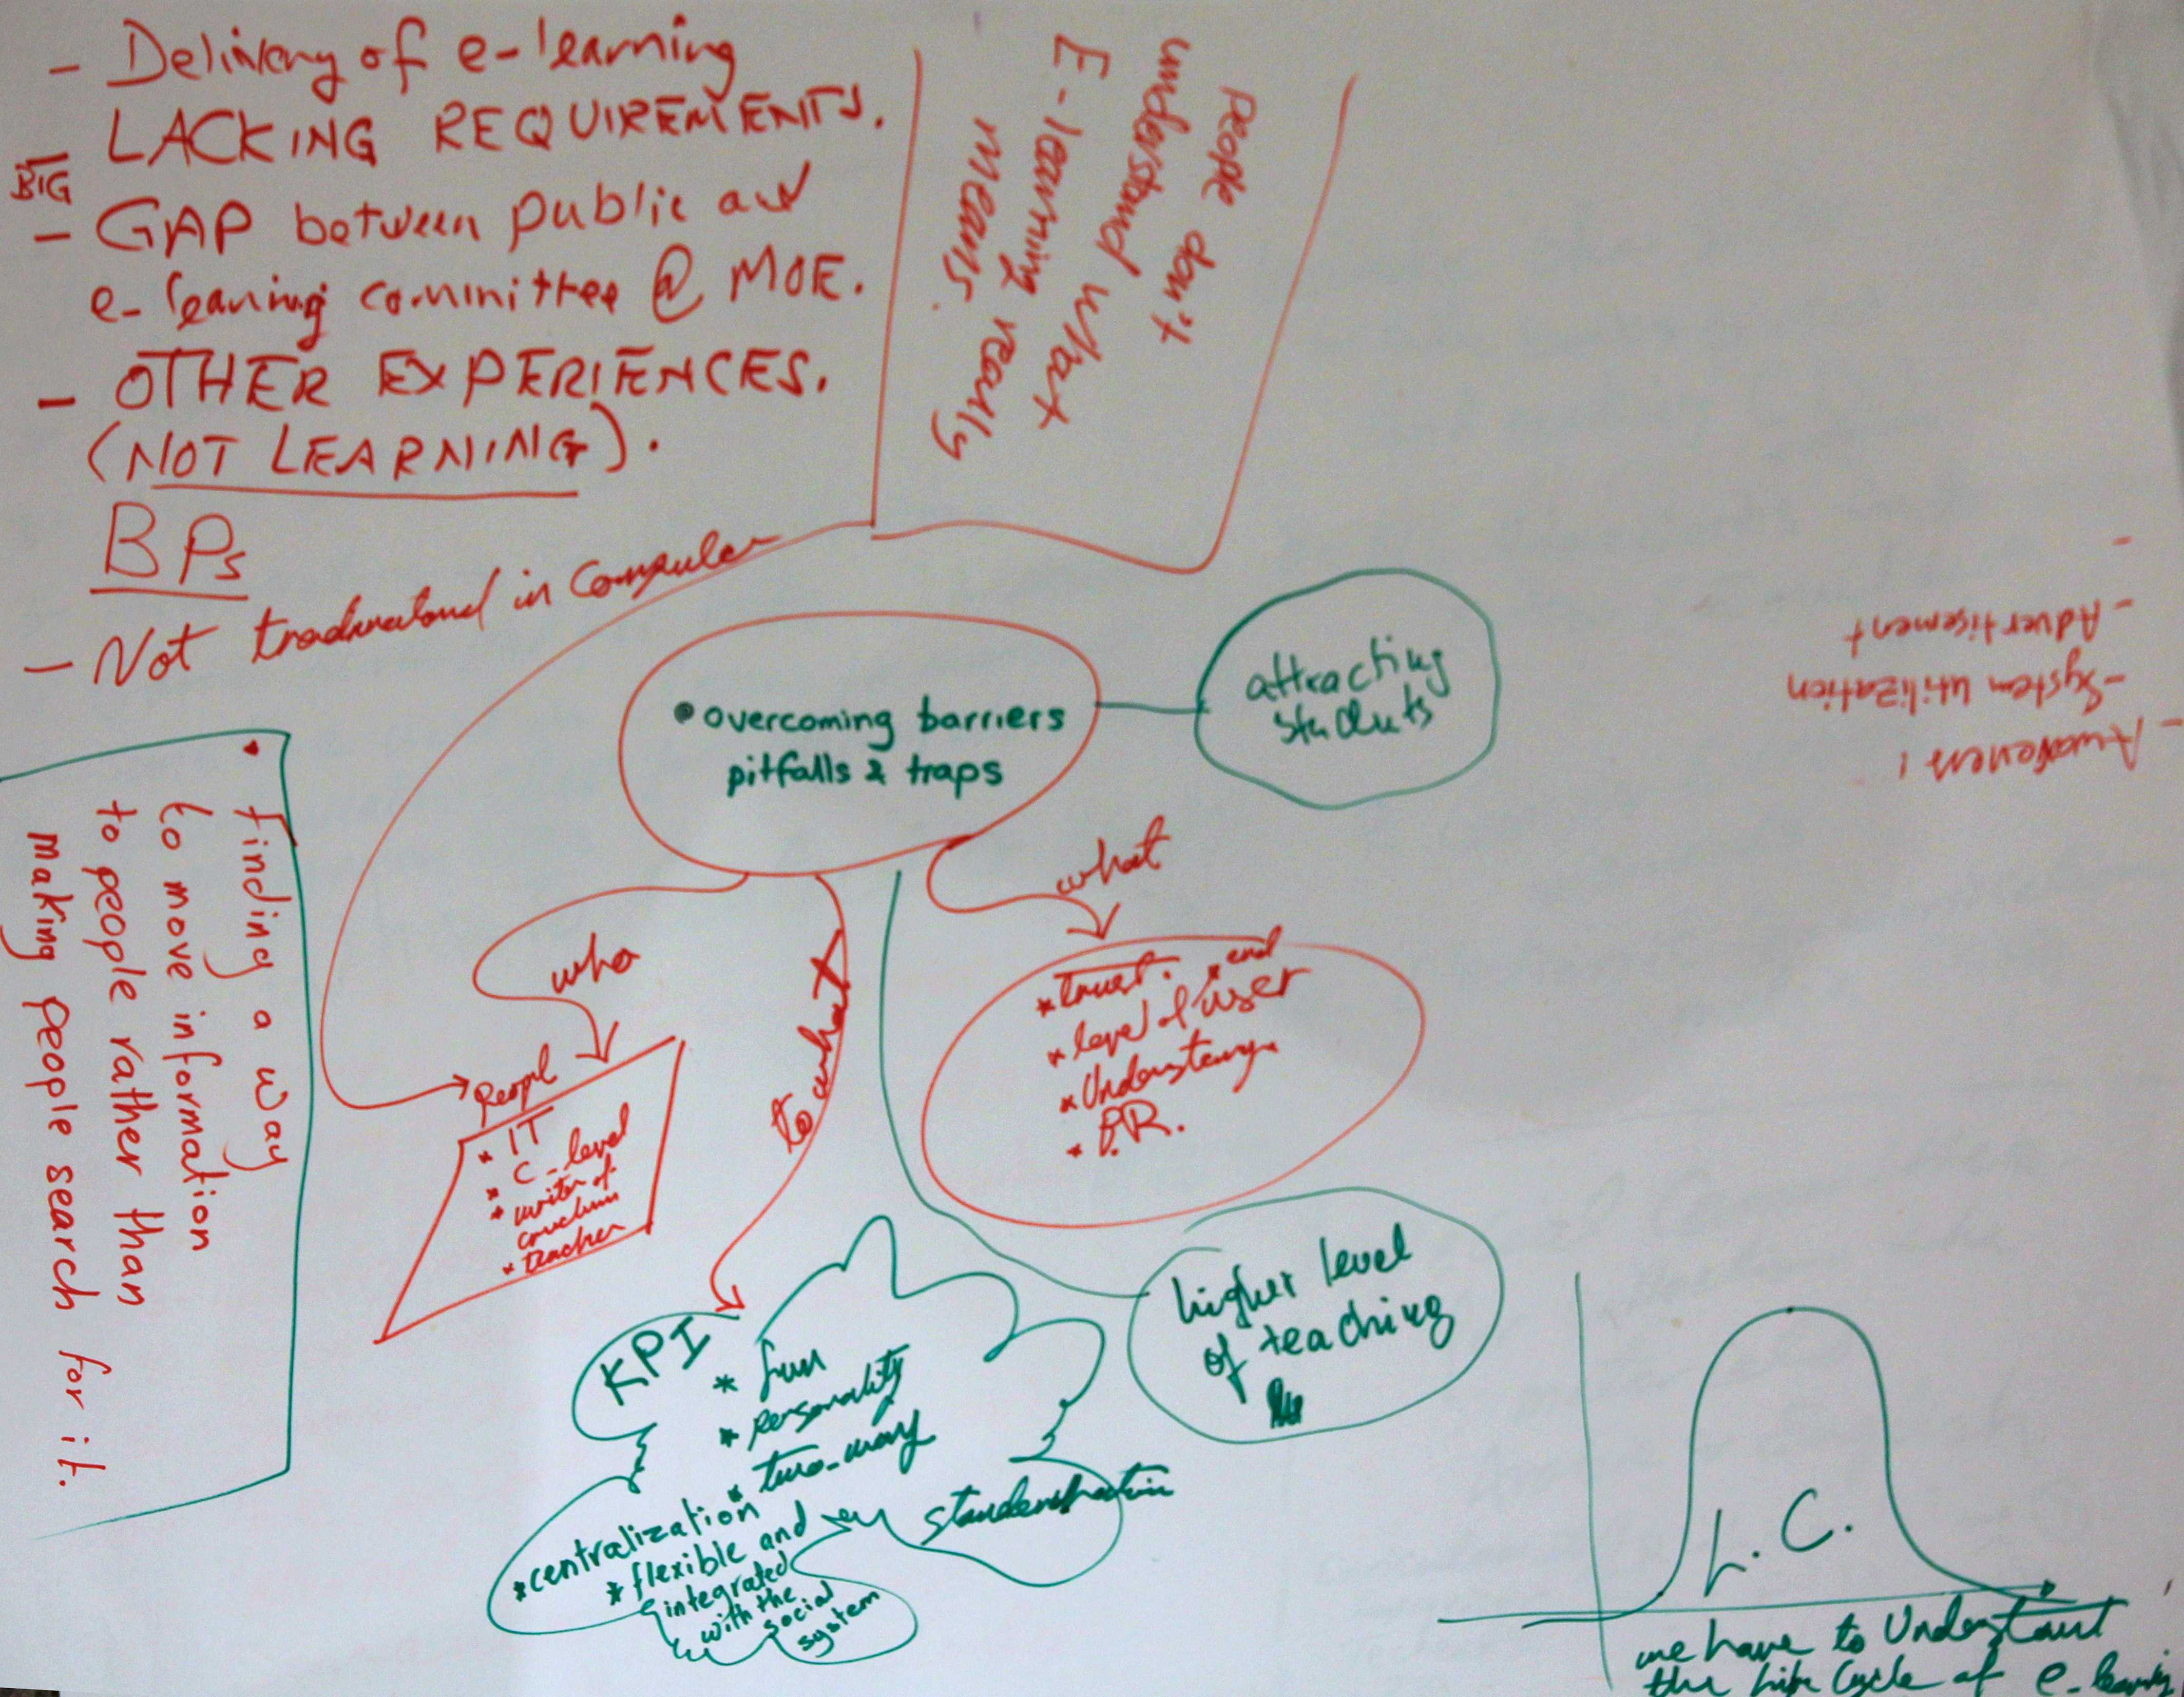 - Delivery of e-learning
LACKING REQUIREMENTS.
BIG
- GAP between public and
e-leaning committee @ MOE.
- OTHER EXPERIENCES.
(NOT LEARNING).
BPs
- Not in
People don't
understand what
E-learning really
means.
• overcoming barriers
pitfalls & traps
attracting
students
-
- Advertisement
- System utilization
- Awareness :
• finding a way
to move information
to people rather than
making people search for it.
who
to what
what
Peopl
* IT
* C-level
* writer of
* teacher
* trust.
* level of end user
*
* P.R.
higher level
of teaching
KPI
* fun
* personality
* two-way
* centralization
* flexible and
integrated
with the
social
system
L.C.
we have to Understant
the life Cycle of e-learning